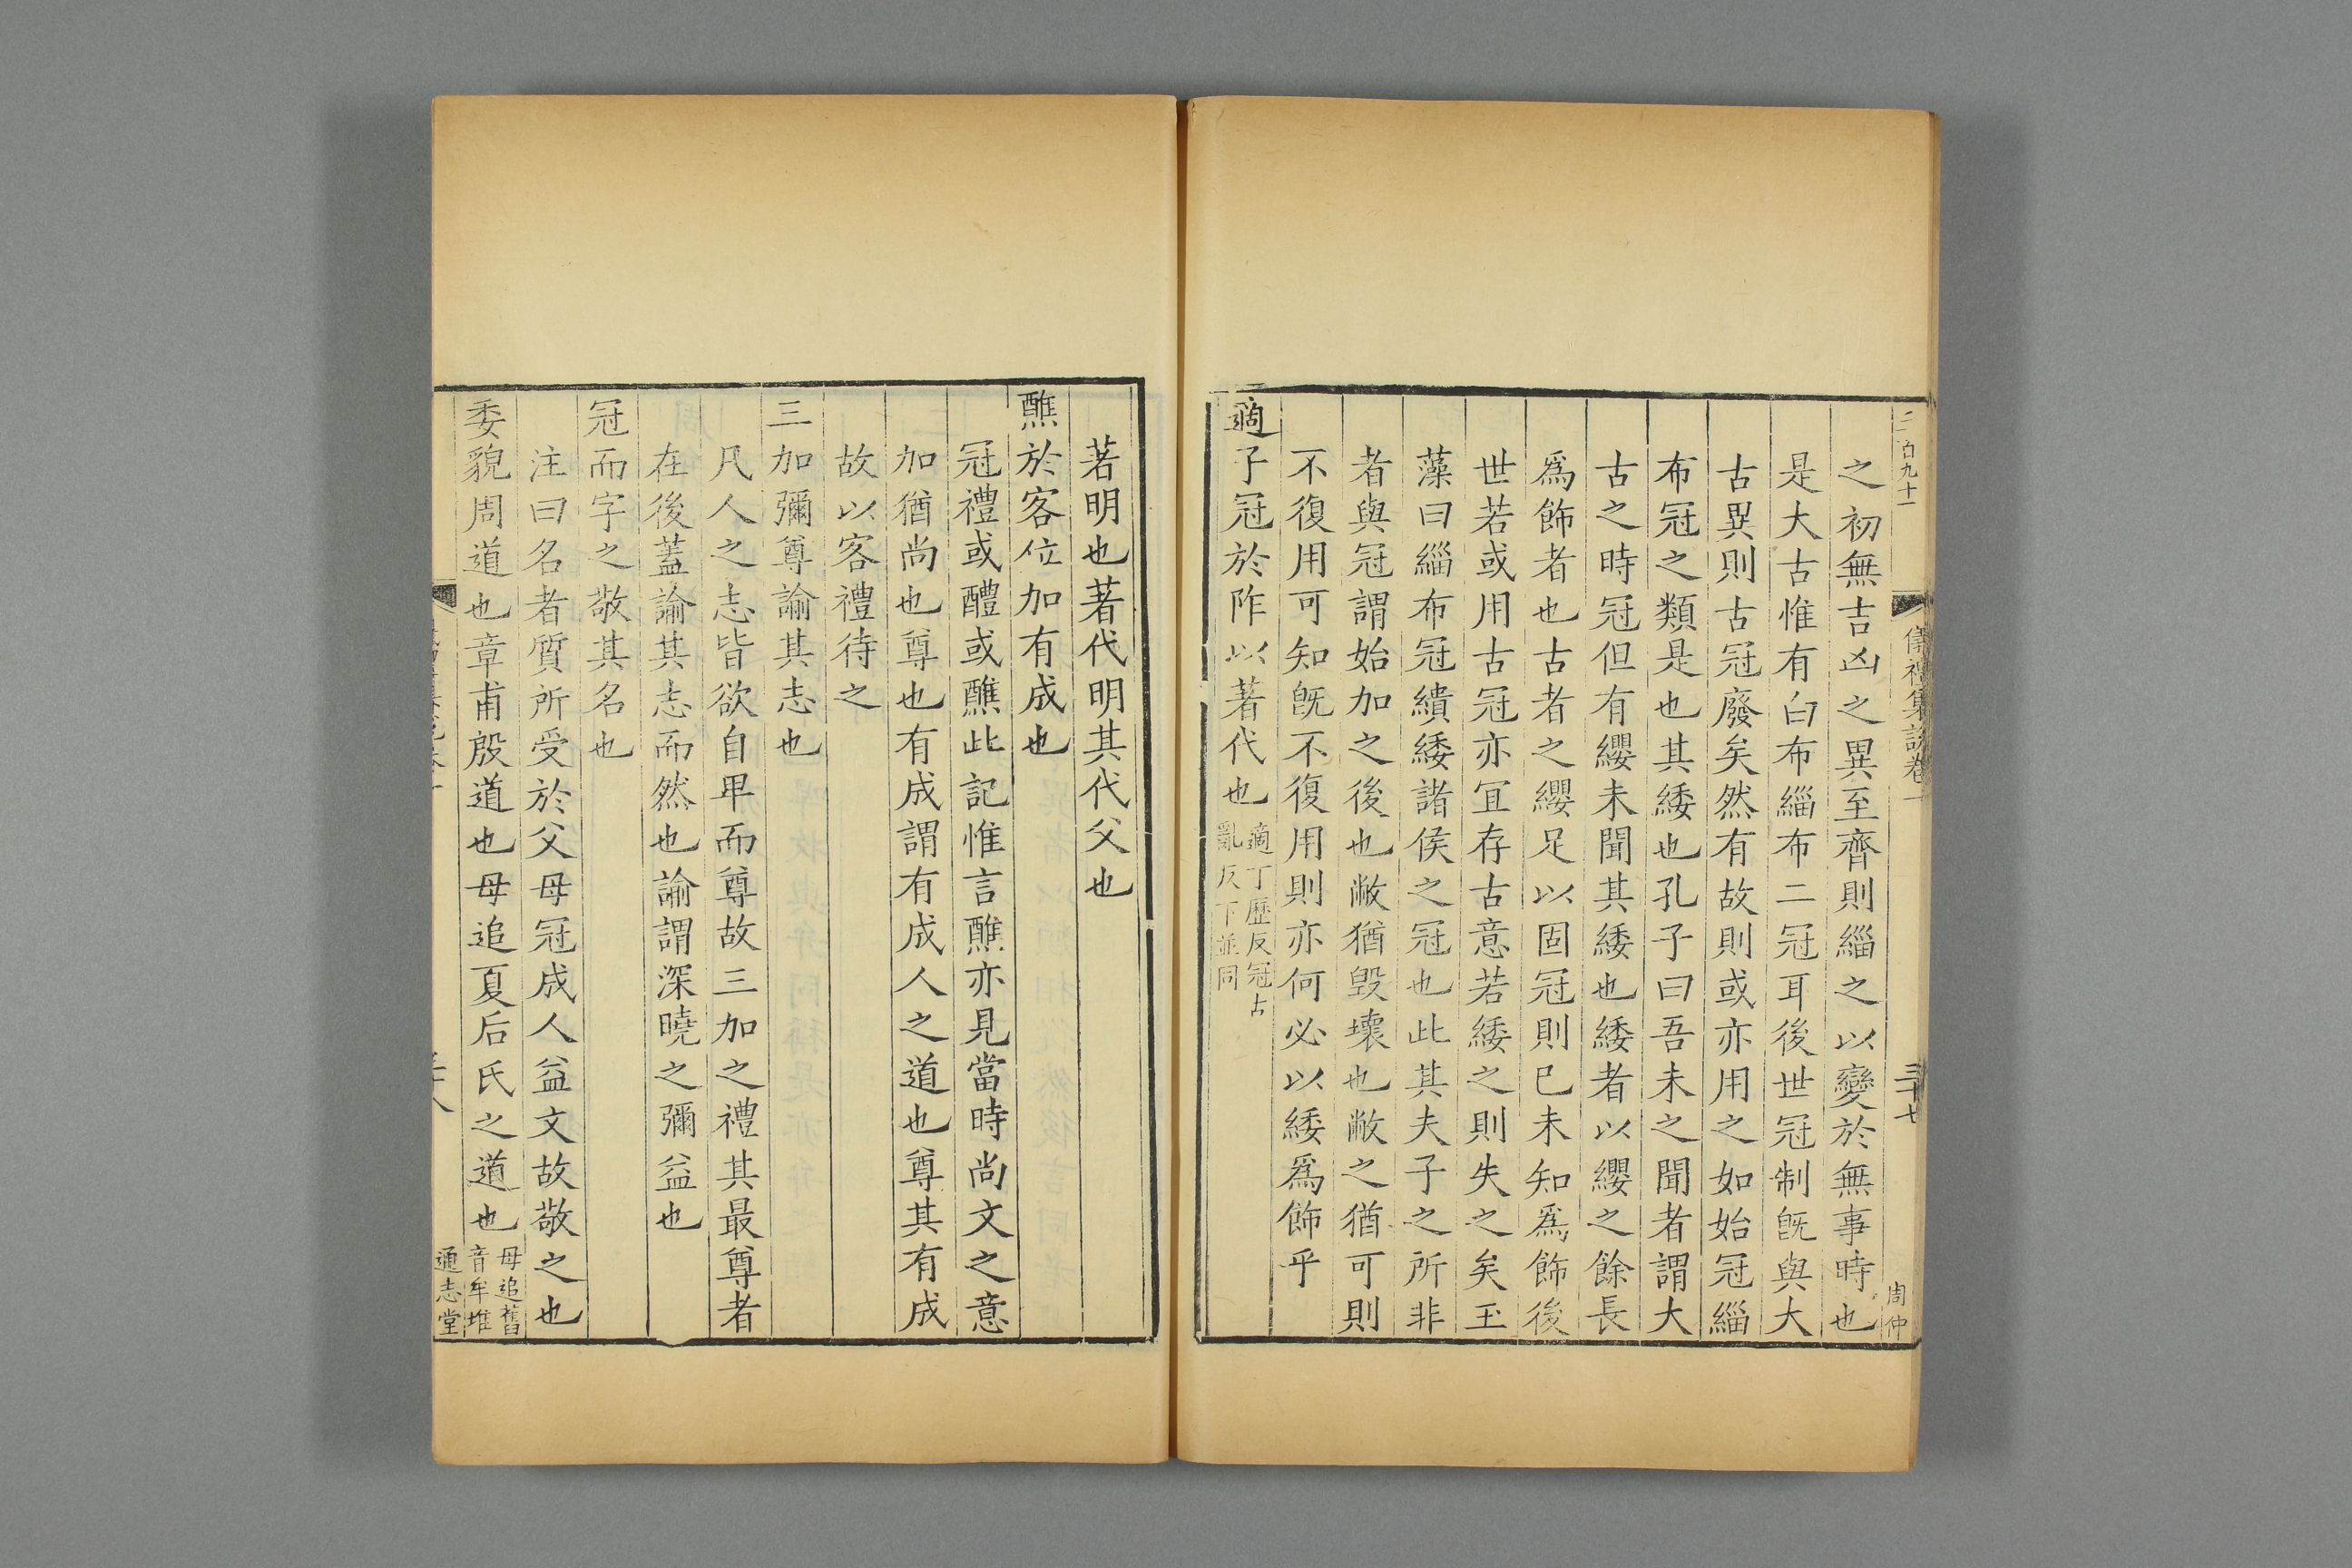 二百九十一
儀禮集說卷一
三十七
周仲
之初無吉凶之異至齊則緇之以變於無事時也
是大古惟有白布緇布二冠耳後世冠制旣與大
古異則古冠廢矣然有故則或亦用之如始冠緇
布冠之類是也其緌也孔子曰吾未之聞者謂大
古之時冠但有纓未聞其緌也緌者以纓之餘長
爲飾者也古者之纓足以固冠則已未知爲飾後
世若或用古冠亦宜存古意若緌之則失之矣玉
藻曰緇布冠繢緌諸侯之冠也此其夫子之所非
者與冠謂始加之後也敝猶毀壞也敝之猶可則
不復用可知旣不復用則亦何必以緌爲飾乎
適子冠於阼以著代也適丁歷反冠古
亂反下並同
著明也著代明其代父也
醮於客位加有成也
冠禮或醴或醮此記惟言醮亦見當時尚文之意
加猶尚也尊也有成謂有成人之道也尊其有成
故以客禮待之
三加彌尊諭其志也
凡人之志皆欲自卑而尊故三加之禮其最尊者
在後蓋諭其志而然也諭謂深曉之彌益也
冠而字之敬其名也
注曰名者質所受於父母冠成人益文故敬之也
委貌周道也章甫殷道也毋追夏后氏之道也毋追舊
音牟堆
通志堂